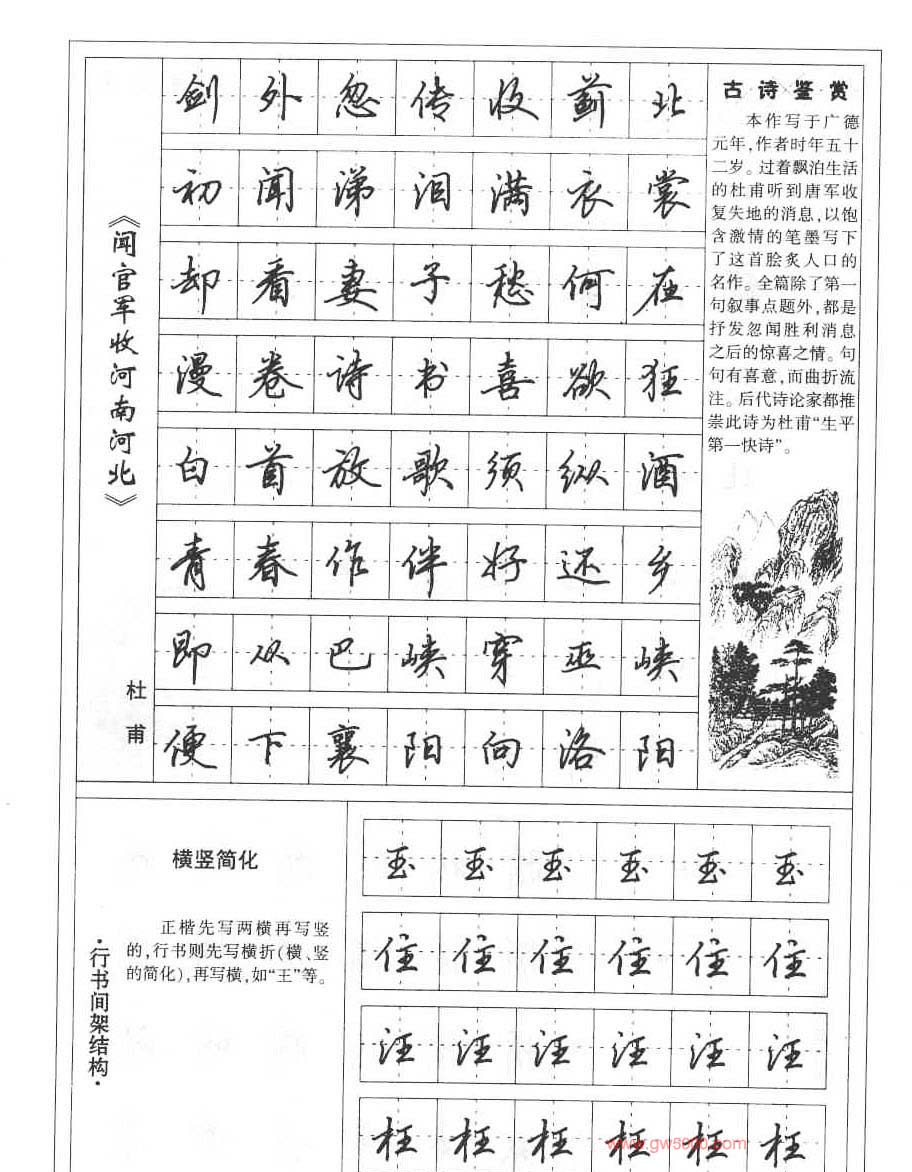 《闻官军收河南河北》
杜甫
剑外忽传收蓟北
初闻涕泪满衣裳
却看妻子愁何在
漫卷诗书喜欲狂
白首放歌须纵酒
青春作伴好还乡
即从巴峡穿巫峡
便下襄阳向洛阳
古诗鉴赏
本作写于广德
元年,作者时年五十
二岁。过着飘泊生活
的杜甫听到唐军收
复失地的消息,以饱
含激情的笔墨写下
了这首脍炙人口的
名作。全篇除了第一
句叙事点题外,都是
抒发忽闻胜利消息
之后的惊喜之情。句
句有喜意,而曲折流
注。后代诗论家都推
崇此诗为杜甫“生平
第一快诗”。
·行书间架结构·
横竖简化
正楷先写两横再写竖
的,行书则先写横折(横、竖
的简化),再写横,如“王”等。
玉玉玉玉玉玉
住住住住住住
汪汪汪汪汪汪
枉枉枉枉枉枉
www.gw5000.com